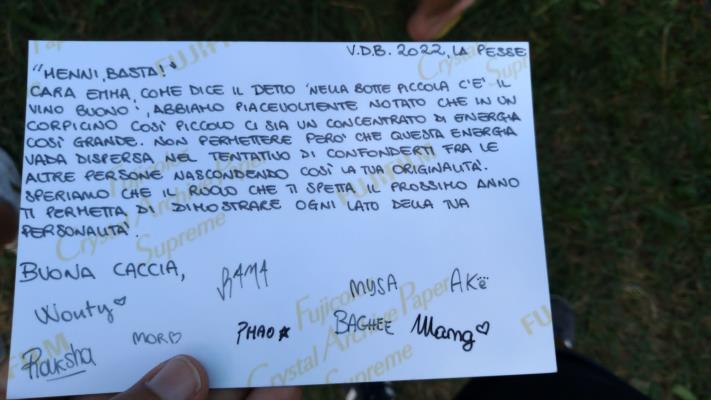 V.D.B. 2022, LA PESSE
"HENNI, BASTA!"
CARA EMMA, COME DICE IL DETTO 'NELLA BOTTE PICCOLA C'E' IL
VINO BUONO', ABBIAMO PIACEVOLMENTE NOTATO CHE IN UN
CORPICINO COSÌ PICCOLO CI SIA UN CONCENTRATO DI ENERGIA
COSÌ GRANDE. NON PERMETTERE PERO' CHE QUESTA ENERGIA
VADA DISPERSA NEL TENTATIVO DI CONFONDERTI FRA LE
ALTRE PERSONE NASCONDENDO COSÌ LA TUA ORIGINALITA'.
SPERIAMO CHE IL RUOLO CHE TI SPETTA IL PROSSIMO ANNO
TI PERMETTA DI DIMOSTRARE OGNI LATO DELLA TUA
PERSONALITA'.
BUONA CACCIA,
RAMA
MYSA
AKË
Wonty
Raksha
MOR
PHAO
BAGHEE
Mang
FUJIFILM
Crystal Archive Paper
Supreme
Fujicolor
Crystal Archive Paper
Supreme